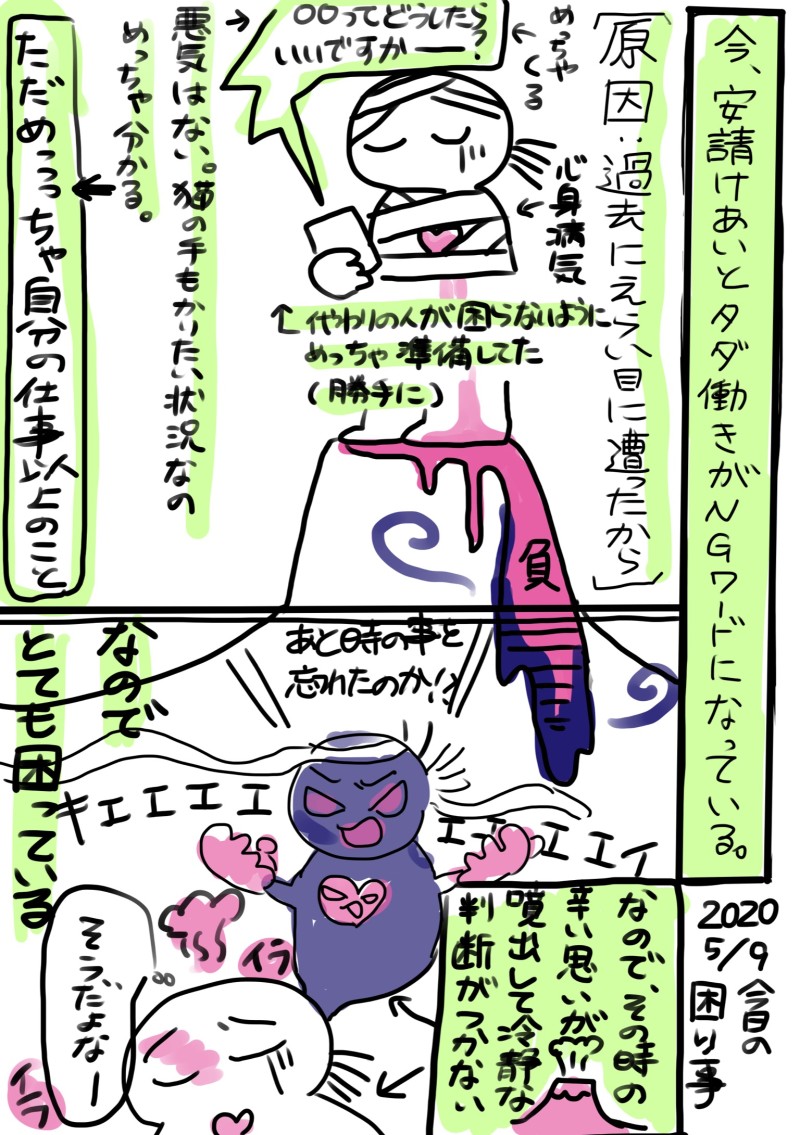 今、安請けあいとタダ働きがNGワードになっている。
2020
5/9 今日の
困り事
[原因:過去にえらい目に遭ったから]
めっちゃ
くる
○○ってどうしたら
いいですかー?
心身病気
代わりの人が困らないように
めっちゃ準備してた
(勝手に)
負
悪気はない。猫の手もかりたい状況なの
めっちゃ分かる。
ただめっっちゃ自分の仕事以上のこと
あと時の事を
忘れたのか!?
キエエエエエ
エエエエエイ
なので、その時の
辛い思いが
噴出して冷静な
判断がつかない
なので
とても困っている
イラ
そうだよなー
イラ